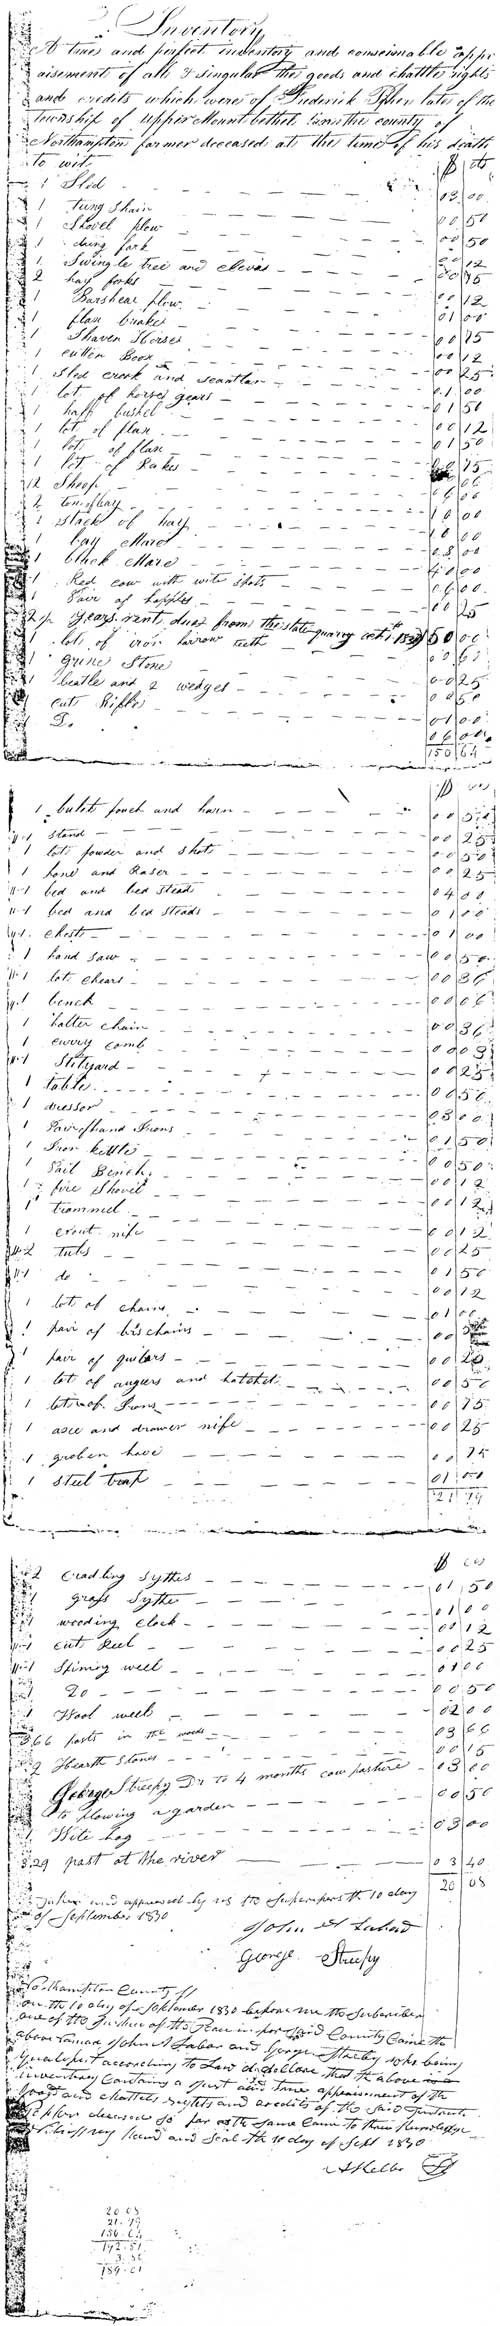 Inventory
A true and perfect inventory and conscionable appr
aisement of all & singular the goods and chattle rights
and credits which were of Frederick late of the
township of upper Mount bethel in the county of
Northampton farmer deceased at the time of his death
to wit. $ cts
1 Slid 03 00
1 tung Chain 00 50
1 Shovel plow 00 50
1 dung fork 00 12
1 Swingle tree and clevis 00 75
2 hay forks 00 12
1 Barshear plow 01 00
1 flax brakes
1 Shaven Horse 00 75
1 cutten Boox 00 12
1 Slid crook and scantlen 00 25
1 lot of horse gears 01 00
1 haff bushel 01 50
1 lot of flax 00 12
1 lots of flax 01 50
1 lot of Rakes 75
12 Sheep
2 tons of hay
1 Stack of hay 10 00
1 bay Mare
1 black Mare 40 00
1 Red cow with wite spots 06 00
1 Pair of happles 00 25
2 years rent due from the slate quarry 50 00
1 lots of iron harrow teeth
1 grine Stone 00 25
1 beatle and 2 wedges 00 50
1 cut Rifle 01 00
1 Do 06 00
150 64
$ cts
1 bulet pouch and horn 00 50
1 stand 00 25
1 lots powder and shots 00 50
1 hone and Raser 00 25
1 bed and bed steads 04 00
1 bed and bed steads 01 00
1 chest 01 00
1 hand saw 00 50
1 lots chears 00 36
1 bench 00 06
1 halter chain 00 36
1 curry comb 00 03
1 Stilyard 00 25
1 table 00 50
1 dresser 03 00
1 Pair of hand Irons 01 50
1 Iron kettle 00 50
1 Pail Bench 00 12
1 fire Shovel 00 12
1 trammel
1 crout nife 00 12
2 tubs 00 25
1 do 01 50
1 lot of chains 00 12
1 pair of chains 01 00
1 pair of 00
1 lot of augurs and hatchet 00 50
1 lots of Irons 00 75
1 axe and drawer nife 00 25
1 groben hove 00 75
1 steel trap 01 00
21 79
$ cts
2 Cradling Sythes 01 50
1 grass Sythe 01 00
1 wooding Clock 00 12
1 cut Reel 00 25
1 Spining weel 01 00
1 Do 00 50
1 Wool weel 02 00
366 posts in the woods 03 66
2 Hearth Stones 00 15
George Streepy Dr to 4 months cow pasture 03 00
to plowing a garden 00 50
1 Wite hog 03 00
329 past at the river 03 40
20 08
Taken and appraised by us the Subscribers th 10 day
of September 1830
John
George Streepy
Northampton County ss
on the 10 day of September 1830 before me the Subscriber
one of the Justices of the Peace in for said County Came the
above named John Labar and George Streepy who being
Qualified according to Law do declare that the above
inventory Contains a Just and true appraisement of the
goods and chattels rights and credits of the said
deceased so far as the same Came to their Knowledge
my hand and Seal th 10 day of Sept 1830
20.08
21.79
150.64
192.51
3.50
189.01